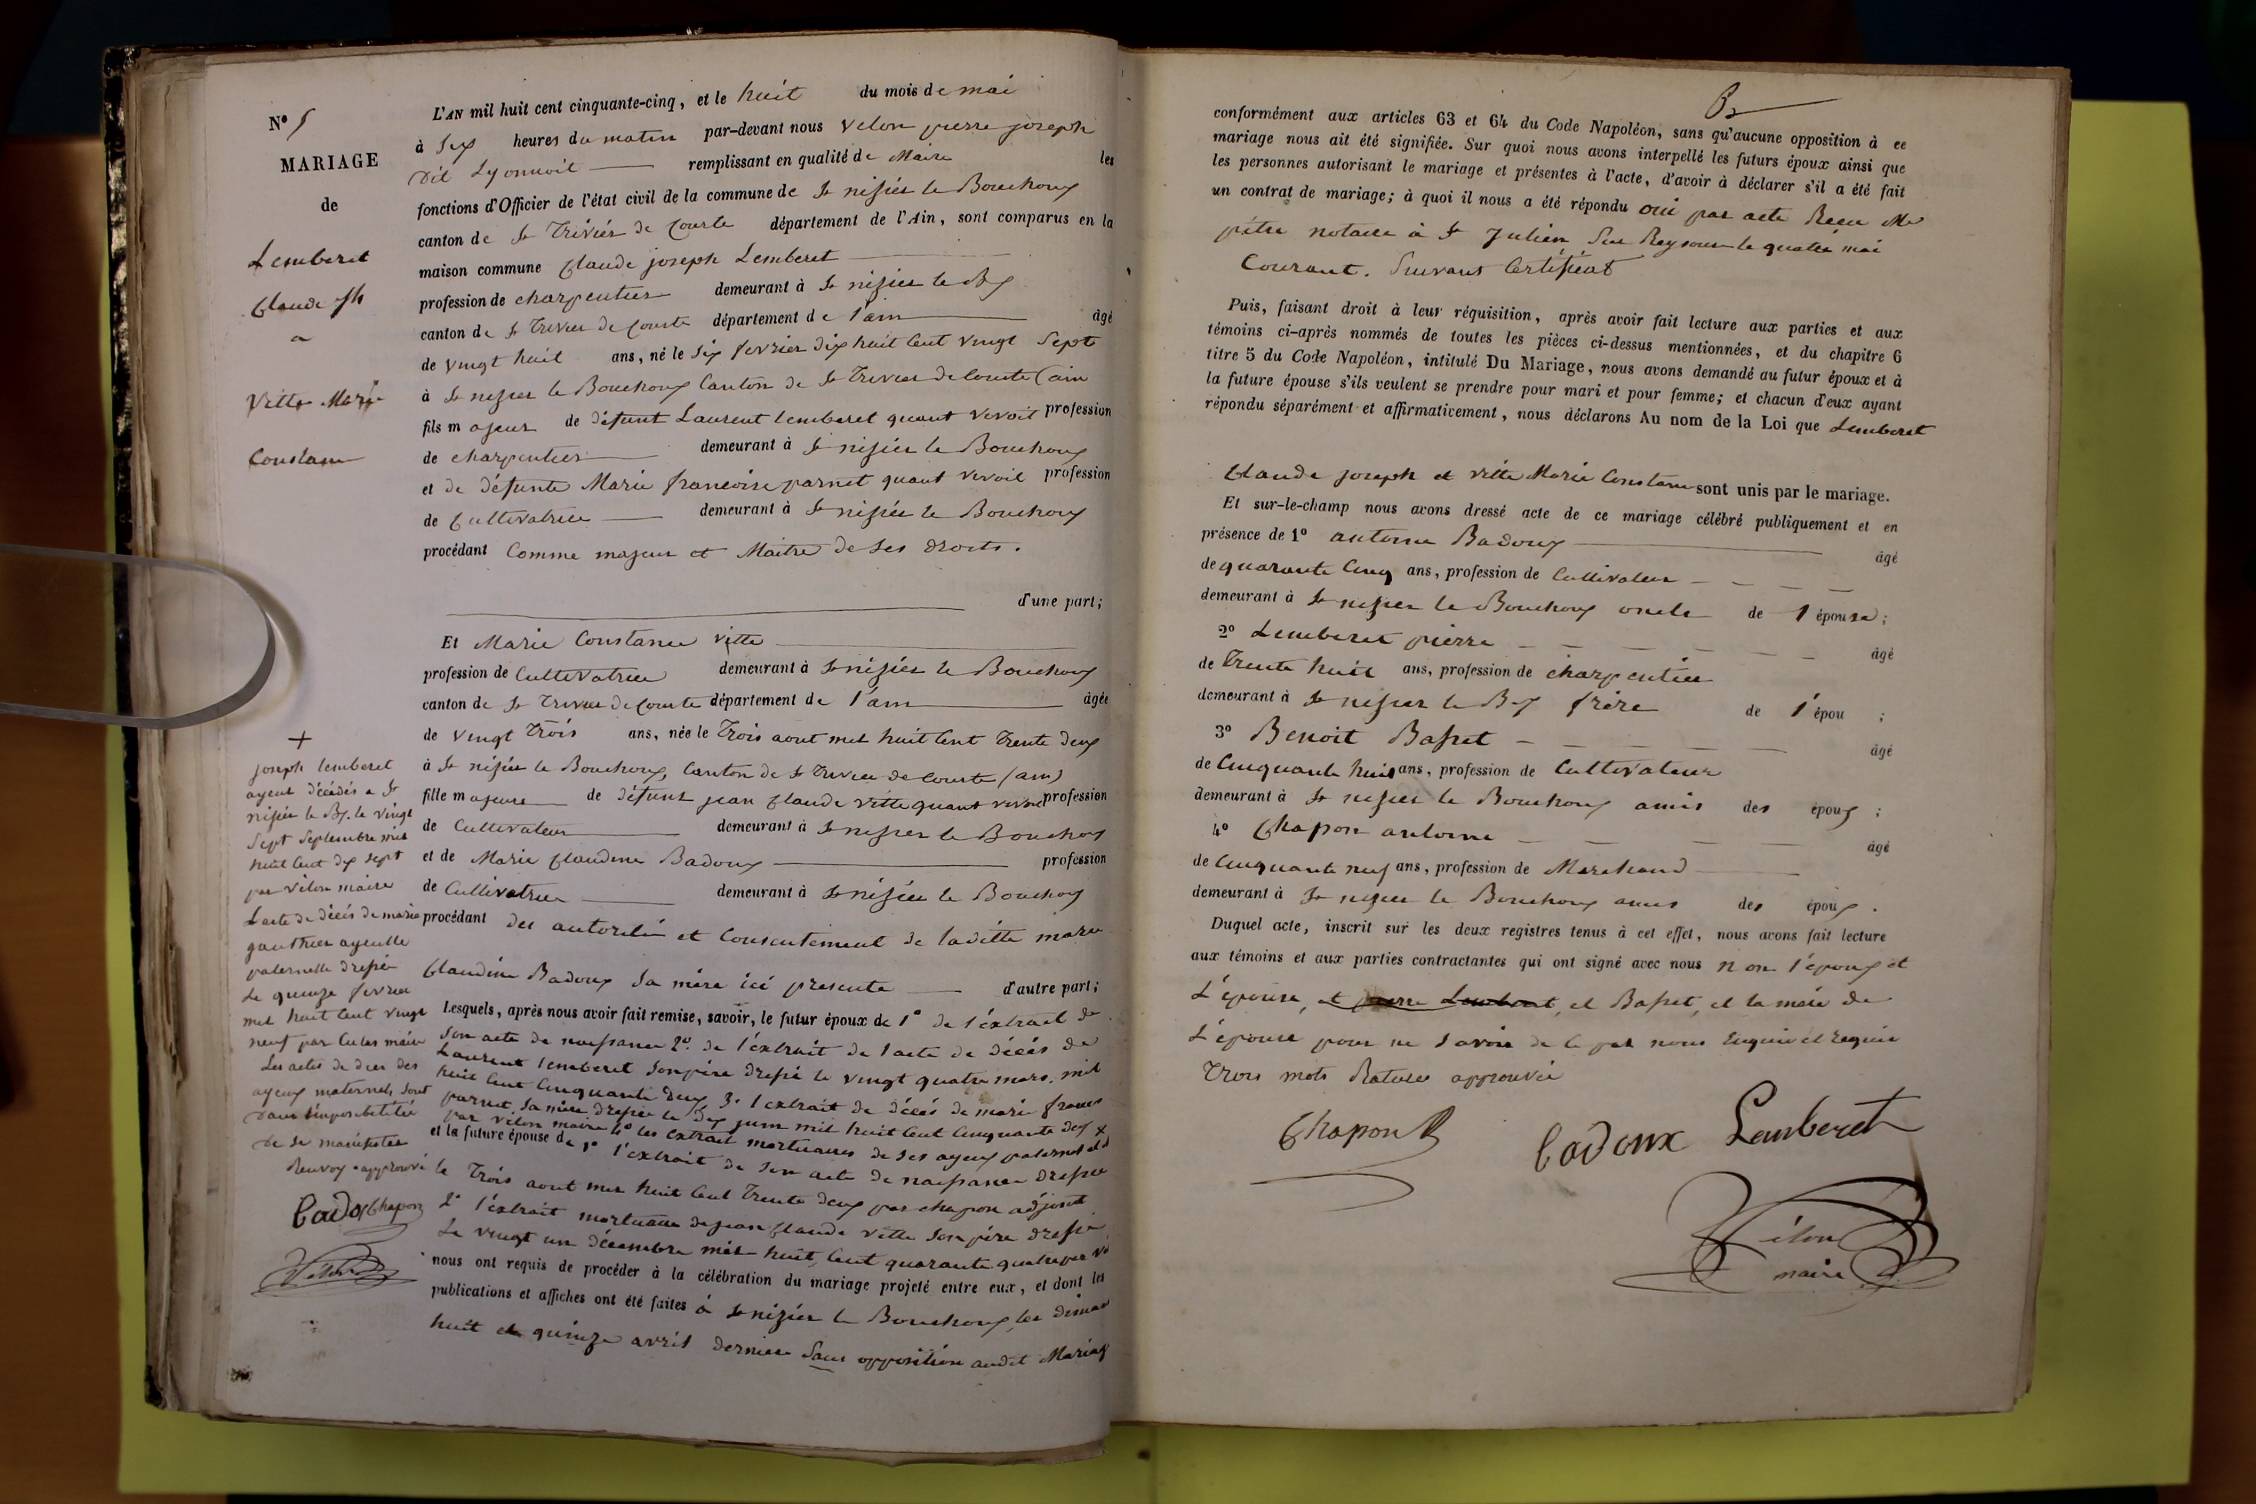 N° 5
MARIAGE
de
Lemberet
Claude Jh
a
Vitte Marie
Constance
L'AN mil huit cent cinquante-cinq, et le huit du mois de mai
à six heures du matin par-devant nous Velon pierre joseph
dit Lyonnoit remplissant en qualité de Maire les
fonctions d'Officier de l'état civil de la commune de St nisier le Bouchoux
canton de St Trivier de Courte département de l'Ain, sont comparus en la
maison commune Claude joseph Lemberet
profession de charpentier demeurant à St nisier le Bx
canton de St Trivier de Courte département de l'ain âgé
de vingt huit ans, né le six fevrier dix huit cent vingt sept
à St nisier le Bouchoux Canton de St Trivier de Courte (ain
fils majeur de défunt Laurent Lemberet quant vivoit profession
de charpentier demeurant à St nisier le Bouchoux
et de défunte Marie francoise parnet quant vivoit profession
de Cultivatrice demeurant à St nisier le Bouchoux
procédant Comme majeur et Maitre de ses droits.
d'une part;
Et Marie Constance Vitte
profession de Cultivatrice demeurant à St nisier le Bouchoux
canton de St Trivier de Courte département de l'ain âgée
de vingt trois ans, née le Trois aout mil huit cent trente deux
à St nisier le Bouchoux, Canton de St Trivier de Courte (ain)
fille majeure de défunt jean Claude Vitte quant vivoit profession
de Cultivateur demeurant à St nisier le Bouchoux
et de Marie Claudine Badoux profession
de Cultivatrice demeurant à St nisier le Bouchoux
procédant des autorité et Consentement de ladite marie
Claudine Badoux sa mère ici presente d'autre part;
Lesquels, après nous avoir fait remise, savoir, le futur époux de 1° de l'éxtrait de
son acte de naissance 2° de l'éxtrait de l'acte de décés de
Laurent Lemberet son père dressé le vingt quatre mars mil
huit cent cinquante deux 3° l'extrait de décés de marie franc
parnet sa mère dressé le dix juin mil huit cent cinquante deux
par Velon maire 4° les extrait mortuaires de ses ayeux paternel et
et la future épouse de 1° l'extrait de son acte de naissance dressé
le Trois aout mil huit cent Trente deux par chapon adjoint
2° l'éxtrait mortuaire de jean Claude Vitte son père dressé
Le vingt un décembre mil huit cent quarante quatre par
nous ont requis de procéder à la célébration du mariage projeté entre eux, et dont les
publications et affiches ont été faites à St nisier le Bouchoux, les diman
huit et quinze avril dernier sans opposition audit Mariage
+
joseph Lemberet
ayeul décédés a St
nisier le Bx le vingt
sept septembre mil
huit cent dix sept
par Velon maire
L'acte de décés de marie
gauthier ayeulle
paternelle dressé
Le quinze fevrier
mil huit cent vingt
neuf par maire
Les actes de deces des
ayeux maternels, sont
dans l'imposibilitée
de se manifester
Renvoy approuvé
Cadox Chapon
Velon
conformément aux articles 63 et 64 du Code Napoléon, sans qu'aucune opposition à ce
mariage nous ait été signifiée. Sur quoi nous avons interpellé les futurs époux ainsi que
les personnes autorisant le mariage et présentes à l'acte, d'avoir à déclarer s'il a été fait
un contrat de mariage; à quoi il nous a été répondu oui par acte Recu Me
pétre notaire à St Julien Sur Reyssouze le quatre mai
Courant. Suivant Certificat
Puis, faisant droit à leur réquisition, après avoir fait lecture aux parties et aux
témoins ci-après nommés de toutes les pièces ci-dessus mentionnées, et du chapitre 6
titre 5 du Code Napoléon, intitulé Du Mariage, nous avons demandé au futur époux et à
la future épouse s'ils veulent se prendre pour mari et pour femme; et chacun d'eux ayant
répondu séparément et affirmativement, nous déclarons Au nom de la Loi que Lemberet
Claude joseph et Vitte Marie Constance sont unis par le mariage.
Et sur-le-champ nous avons dressé acte de ce mariage célébré publiquement et en
présence de 1° antoine Badoux âgé
de quarante Cinq ans, profession de Cultivateur
demeurant à St nisier le Bouchoux oncle de l épouse;
2° Lemberet pierre âgé
de Trente huit ans, profession de charpentier
demeurant à St nisier le Bx frère de l'épou ;
3° Benoit Basset âgé
de Cinquante huit ans, profession de Cultivateur
demeurant à St nisier le Bouchoux amis des époux ;
4° Chapon antoine âgé
de Cinquante neuf ans, profession de Marchand
demeurant à St nisier le Bouchoux amis des époux .
Duquel acte, inscrit sur les deux registres tenus à cet effet, nous avons fait lecture
aux témoins et aux parties contractantes qui ont signé avec nous non l'époux et
L'épouse, et pierre Lemberet, et Basset, et la mère de
L'épouse pour ne savoir de ce par nous Enquis et requis
Trois mots Raturés approuvée
Chapon Cadoux Lemberet
Vélon
maire